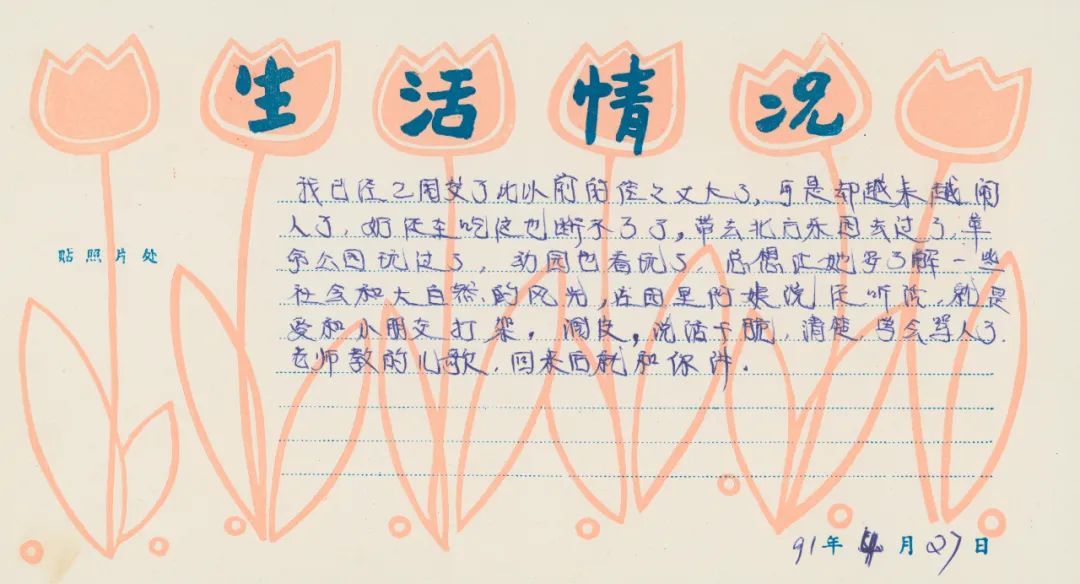 生活情况
贴照片处
我已经2周岁了比以前的 又大了，可是却越来越闹
人了，奶还在吃 也断不了了，带去北方乐园去过了，
公园玩过了，动园也看玩了，总想让她多了解一些
社会和大自然的风光，在园里阿姨说 听说，就是
爱和小朋友打架，调皮，说话干脆，清楚，学会骂人了，
老师教的儿歌，回来后就和你讲．
91年4月27日